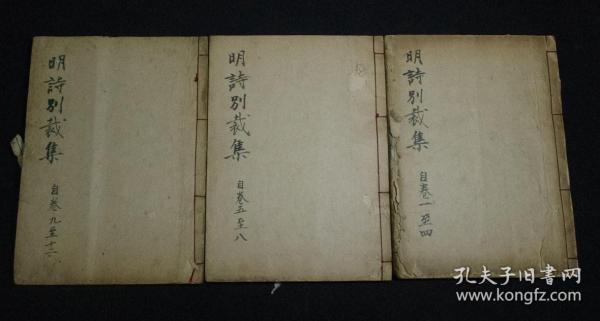 明詩別裁集
自卷一至四
明詩別裁集
自卷五至八
明詩別裁集
自卷九至十二
孔夫子旧书网
www.kongfz.com